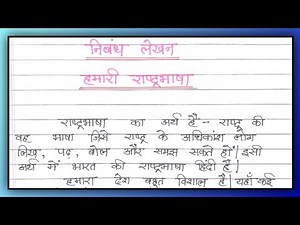 निबंध लेखन
हमारी राष्ट्रभाषा
राष्ट्रभाषा का अर्थ है:- राष्ट्र की
वह भाषा जिसे राष्ट्र के अधिकांश लोग
लिख, पढ़, बोल और समझ सकते हो। इसी
अर्थ में भारत की राष्ट्रभाषा हिंदी है।
हमारा देश बहुत विशाल है। यहाँ कई